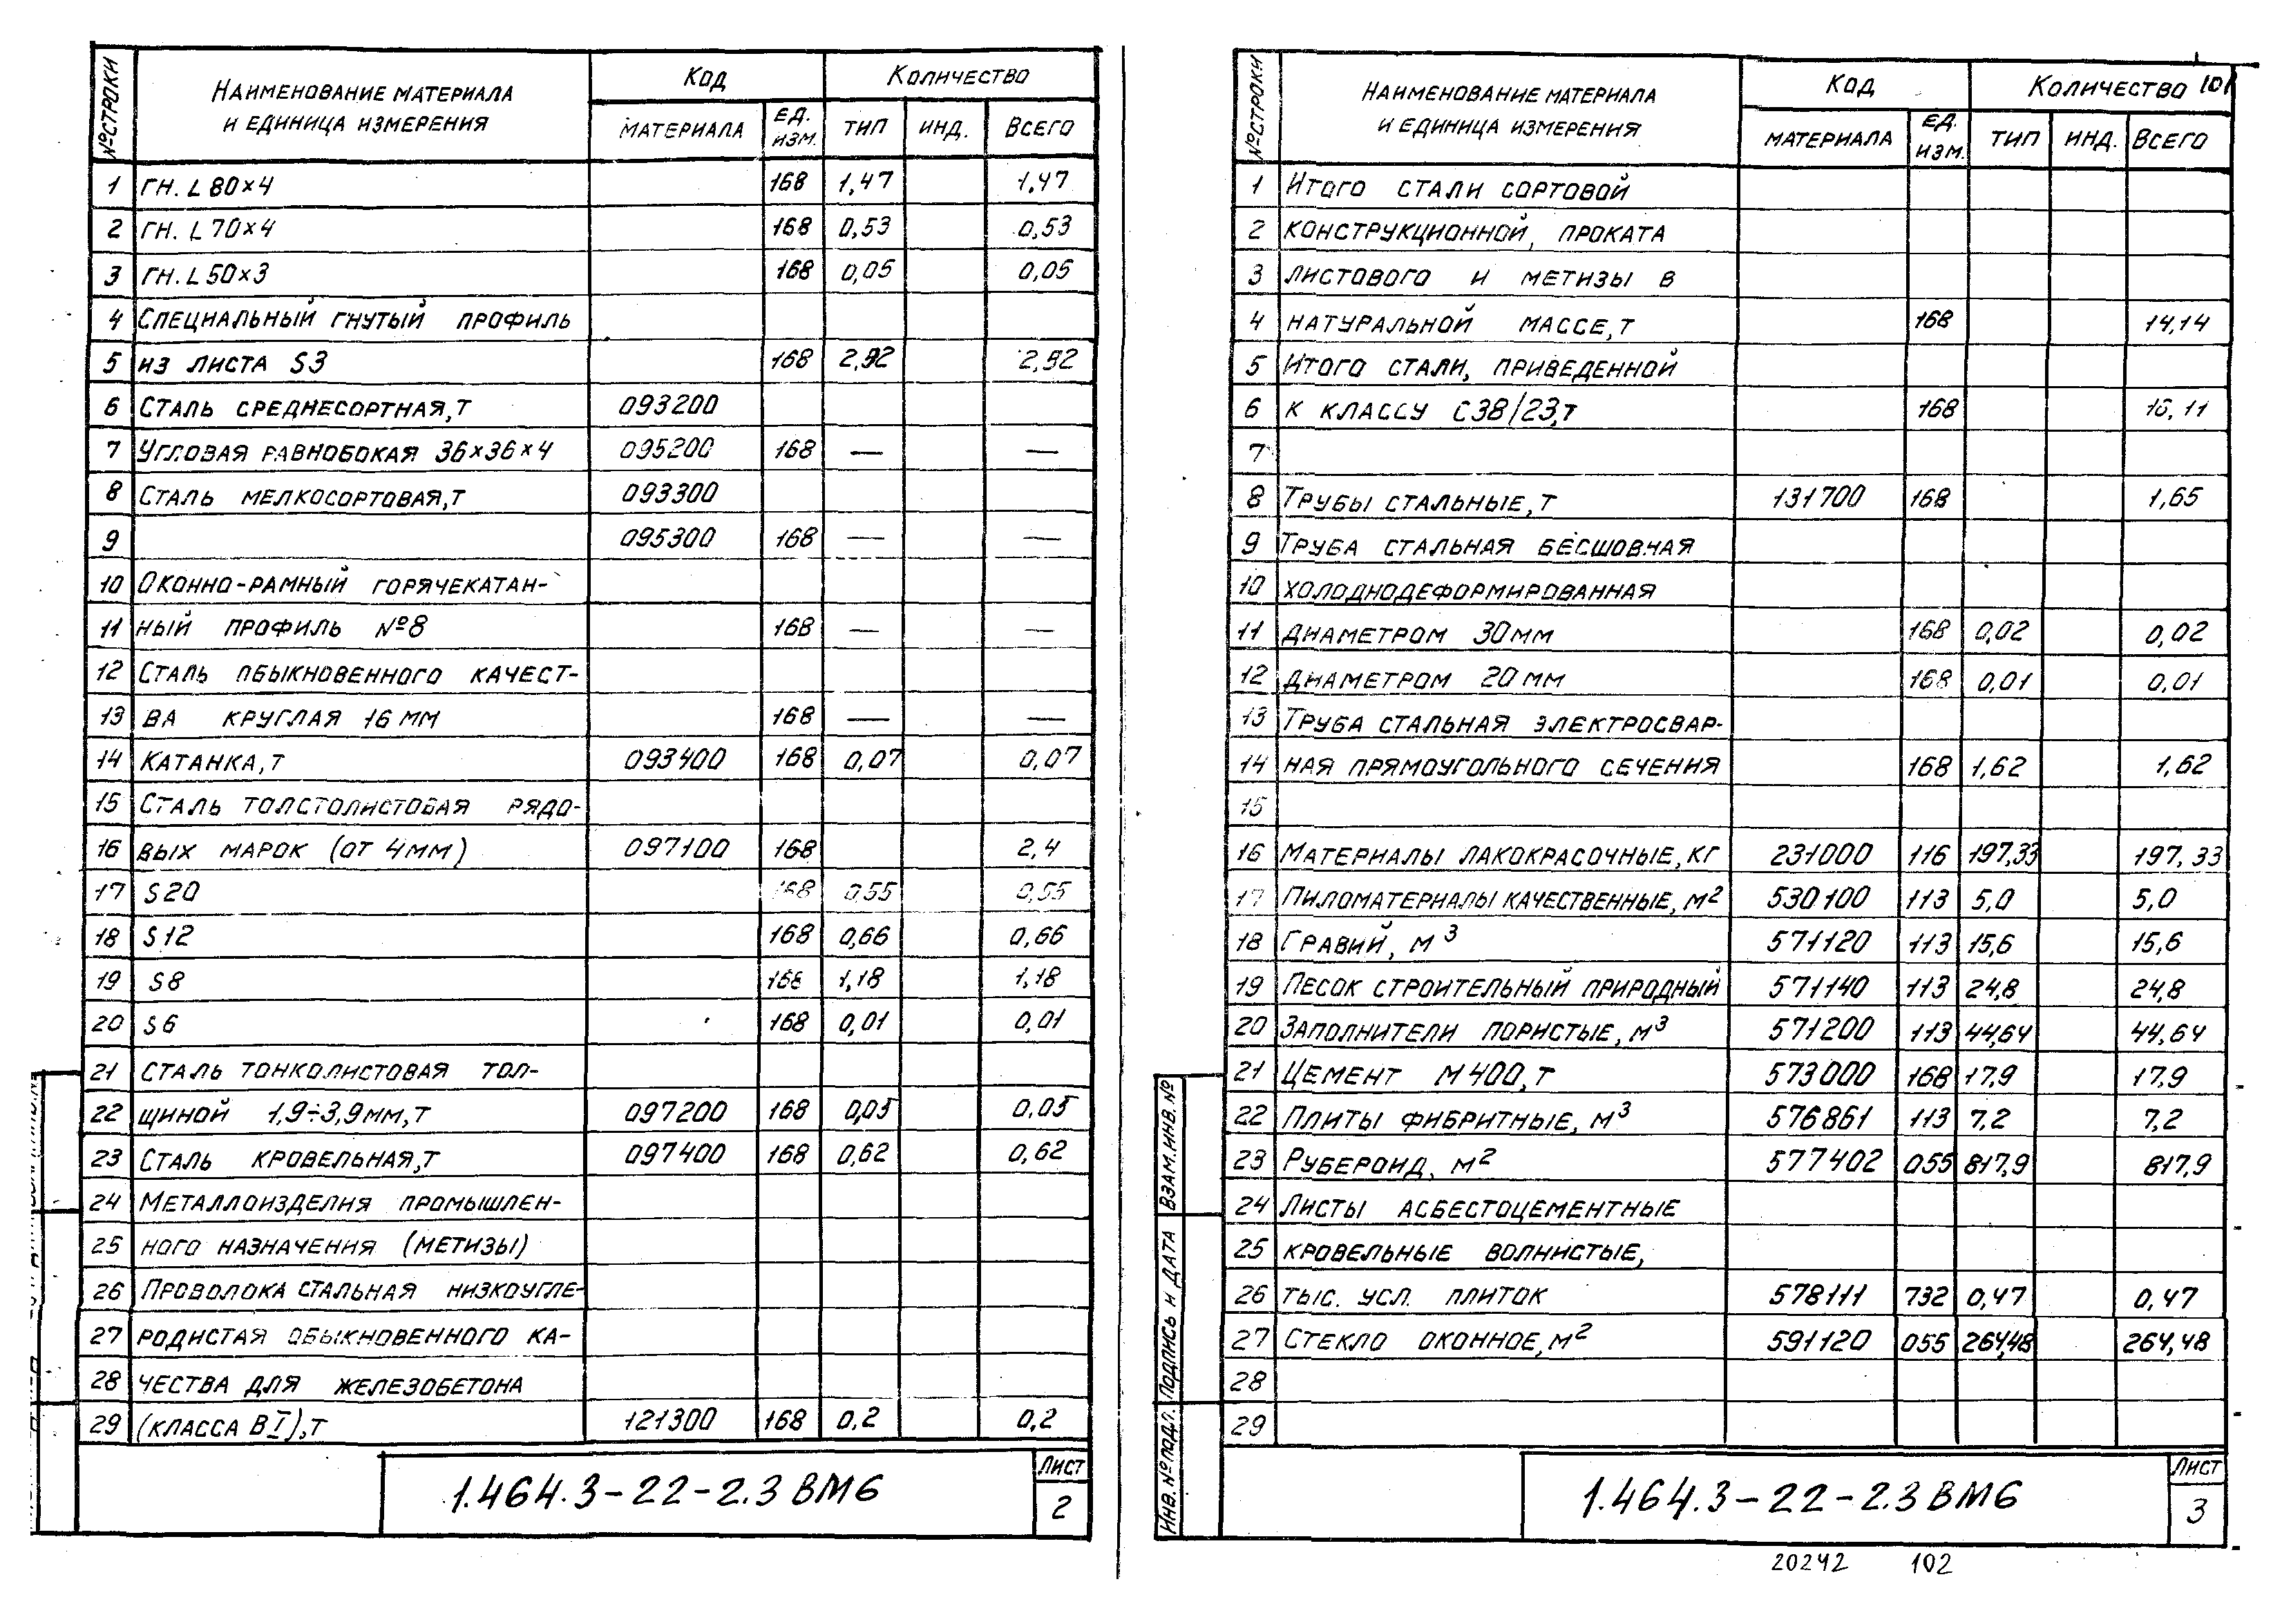 № СТРОКИ НАИМЕНОВАНИЕ МАТЕРИАЛА И ЕДИНИЦА ИЗМЕРЕНИЯ КОД КОЛИЧЕСТВО
МАТЕРИАЛА ЕД. ИЗМ. ТИП ИНД. ВСЕГО
1 ГН. L 80×4 168 1,47 1,47
2 ГН. L 70×4 168 0,53 0,53
3 ГН. L 50×3 168 0,05 0,05
4 СПЕЦИАЛЬНЫЙ ГНУТЫЙ ПРОФИЛЬ
5 ИЗ ЛИСТА S3 168 2,92 2,92
6 СТАЛЬ СРЕДНЕСОРТНАЯ, Т 093200
7 УГЛОВАЯ РАВНОБОКАЯ 36×36×4 095200 168 — —
8 СТАЛЬ МЕЛКОСОРТОВАЯ, Т 093300
9 095300 168 — —
10 ОКОННО-РАМНЫЙ ГОРЯЧЕКАТАН-
11 НЫЙ ПРОФИЛЬ №8 168 — —
12 СТАЛЬ ОБЫКНОВЕННОГО КАЧЕСТ-
13 ВА КРУГЛАЯ 16 ММ 168 — —
14 КАТАНКА, Т 093400 168 0,07 0,07
15 СТАЛЬ ТОЛСТОЛИСТОВАЯ РЯДО-
16 ВЫХ МАРОК (ОТ 4ММ) 097100 168 2,4
17 S20 168 0,55 0,55
18 S12 168 0,66 0,66
19 S8 168 1,18 1,18
20 S6 168 0,01 0,01
21 СТАЛЬ ТОНКОЛИСТОВАЯ ТОЛ-
22 ЩИНОЙ 1,9÷3,9ММ, Т 097200 168 0,05 0,05
23 СТАЛЬ КРОВЕЛЬНАЯ, Т 097400 168 0,62 0,62
24 МЕТАЛЛОИЗДЕЛИЯ ПРОМЫШЛЕН-
25 НОГО НАЗНАЧЕНИЯ (МЕТИЗЫ)
26 ПРОВОЛОКА СТАЛЬНАЯ НИЗКОУГЛЕ-
27 РОДИСТАЯ ОБЫКНОВЕННОГО КА-
28 ЧЕСТВА ДЛЯ ЖЕЛЕЗОБЕТОНА
29 (КЛАССА ВI), Т 121300 168 0,2 0,2
1.464.3-22-2.3 ВМ6
ЛИСТ
2
101
№ СТРОКИ НАИМЕНОВАНИЕ МАТЕРИАЛА И ЕДИНИЦА ИЗМЕРЕНИЯ КОД КОЛИЧЕСТВО
МАТЕРИАЛА ЕД. ИЗМ. ТИП ИНД. ВСЕГО
1 ИТОГО СТАЛИ СОРТОВОЙ
2 КОНСТРУКЦИОННОЙ, ПРОКАТА
3 ЛИСТОВОГО И МЕТИЗЫ В
4 НАТУРАЛЬНОЙ МАССЕ, Т 168 14,14
5 ИТОГО СТАЛИ, ПРИВЕДЕННОЙ
6 К КЛАССУ С38/23, Т 168 16,11
7
8 ТРУБЫ СТАЛЬНЫЕ, Т 131700 168 1,65
9 ТРУБА СТАЛЬНАЯ БЕСШОВНАЯ
10 ХОЛОДНОДЕФОРМИРОВАННАЯ
11 ДИАМЕТРОМ 30ММ 168 0,02 0,02
12 ДИАМЕТРОМ 20 ММ 168 0,01 0,01
13 ТРУБА СТАЛЬНАЯ ЭЛЕКТРОСВАР-
14 НАЯ ПРЯМОУГОЛЬНОГО СЕЧЕНИЯ 168 1,62 1,62
15
16 МАТЕРИАЛЫ ЛАКОКРАСОЧНЫЕ, КГ 231000 116 197,33 197,33
17 ПИЛОМАТЕРИАЛЫ КАЧЕСТВЕННЫЕ, М2 530100 113 5,0 5,0
18 ГРАВИЙ, М3 571120 113 15,6 15,6
19 ПЕСОК СТРОИТЕЛЬНЫЙ ПРИРОДНЫЙ 571140 113 24,8 24,8
20 ЗАПОЛНИТЕЛИ ПОРИСТЫЕ, М3 571200 113 44,64 44,64
21 ЦЕМЕНТ М400, Т 573000 168 17,9 17,9
22 ПЛИТЫ ФИБРИТНЫЕ, М3 576861 113 7,2 7,2
23 РУБЕРОИД, М2 577402 055 817,9 817,9
24 ЛИСТЫ АСБЕСТОЦЕМЕНТНЫЕ
25 КРОВЕЛЬНЫЕ ВОЛНИСТЫЕ,
26 ТЫС. УСЛ. ПЛИТОК 578111 732 0,47 0,47
27 СТЕКЛО ОКОННОЕ, М2 591120 055 264,48 264,48
28
29
ИНВ. № ПОДЛ. ПОДПИСЬ И ДАТА ВЗАМ. ИНВ. №
1.464.3-22-2.3 ВМ6
ЛИСТ
3
20242 102